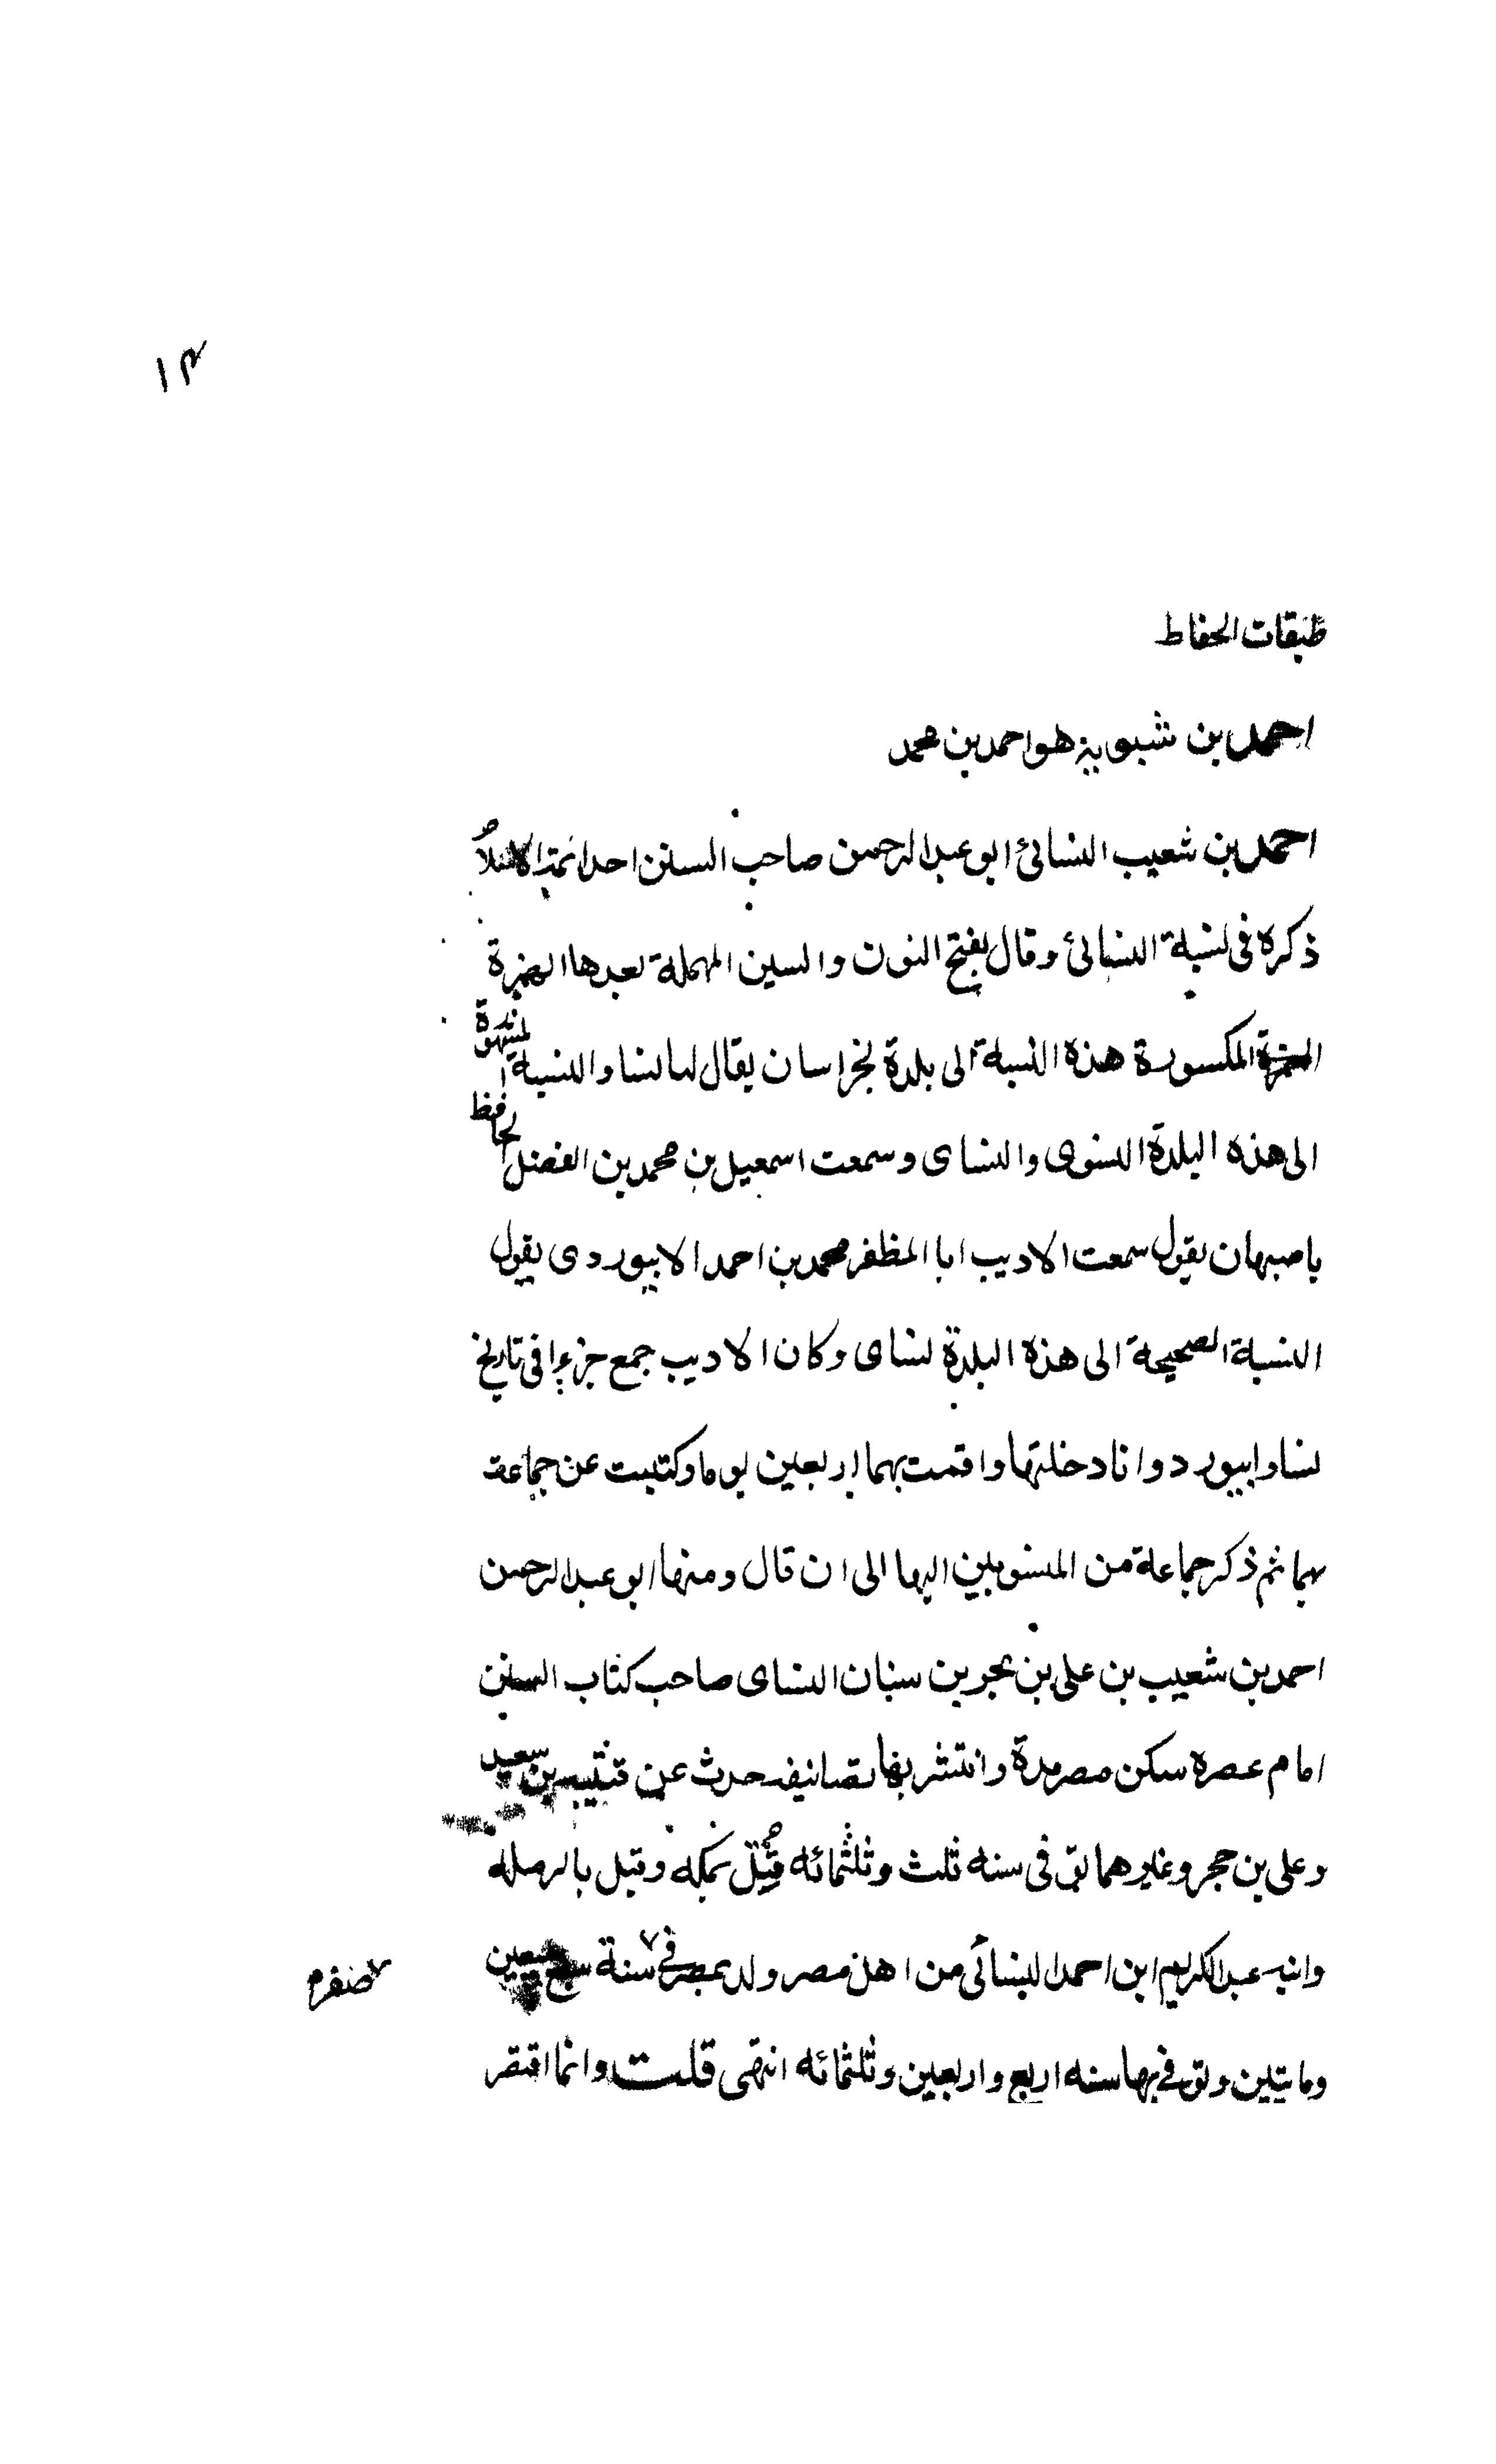 ١٣
طبقات الحفاظ
احمد بن شبويه هو احمد بن محمد
احمد بن شعيب النسائی ابو عبد الرحمن صاحب السنن احد ائمة الاسلام
ذكره فی نسبة النسائی وقال بفتح النون والسين المهملة بعدها الهمزة
المكسورة هذه النسبة الی بلدة بخراسان يقال لها نسا والنسبة المشهورة
الی هذه البلدة النسوی والنسای وسمعت اسمعيل بن محمد بن الفضل الحافظ
باصبهان يقول سمعت الاديب ابا المظفر محمد بن احمد الابيوردی يقول
النسبة الصحيحة الی هذه البلدة نسای وكان الاديب جمع جزءا فی تاريخ
نسا وابيورد وانا دخلتها واقمت بهما اربعين يوما وكتبت عن جماعة
بهما ثم ذكر جماعة من المنسوبين اليها الی ان قال ومنها ابو عبد الرحمن
احمد بن شعيب بن علی بن بحر بن سنان النسای صاحب كتاب السنن
امام عصره سكن مصر مدة وانتشر بها تصانيفه حدث عن قتيبه بن سعيد
وعلی بن حجر وغيرهما توفی فی سنه ثلث وثلثمائه قتل بمكه وقيل بالرمله
وابنه عبد الكريم ابن احمد النسائی من اهل مصر ولد بمصر فی سنة سبع
ومايتين وتوفی بها سنه اربع واربعين وثلثمائه انتهی قلت وانما اقتصر